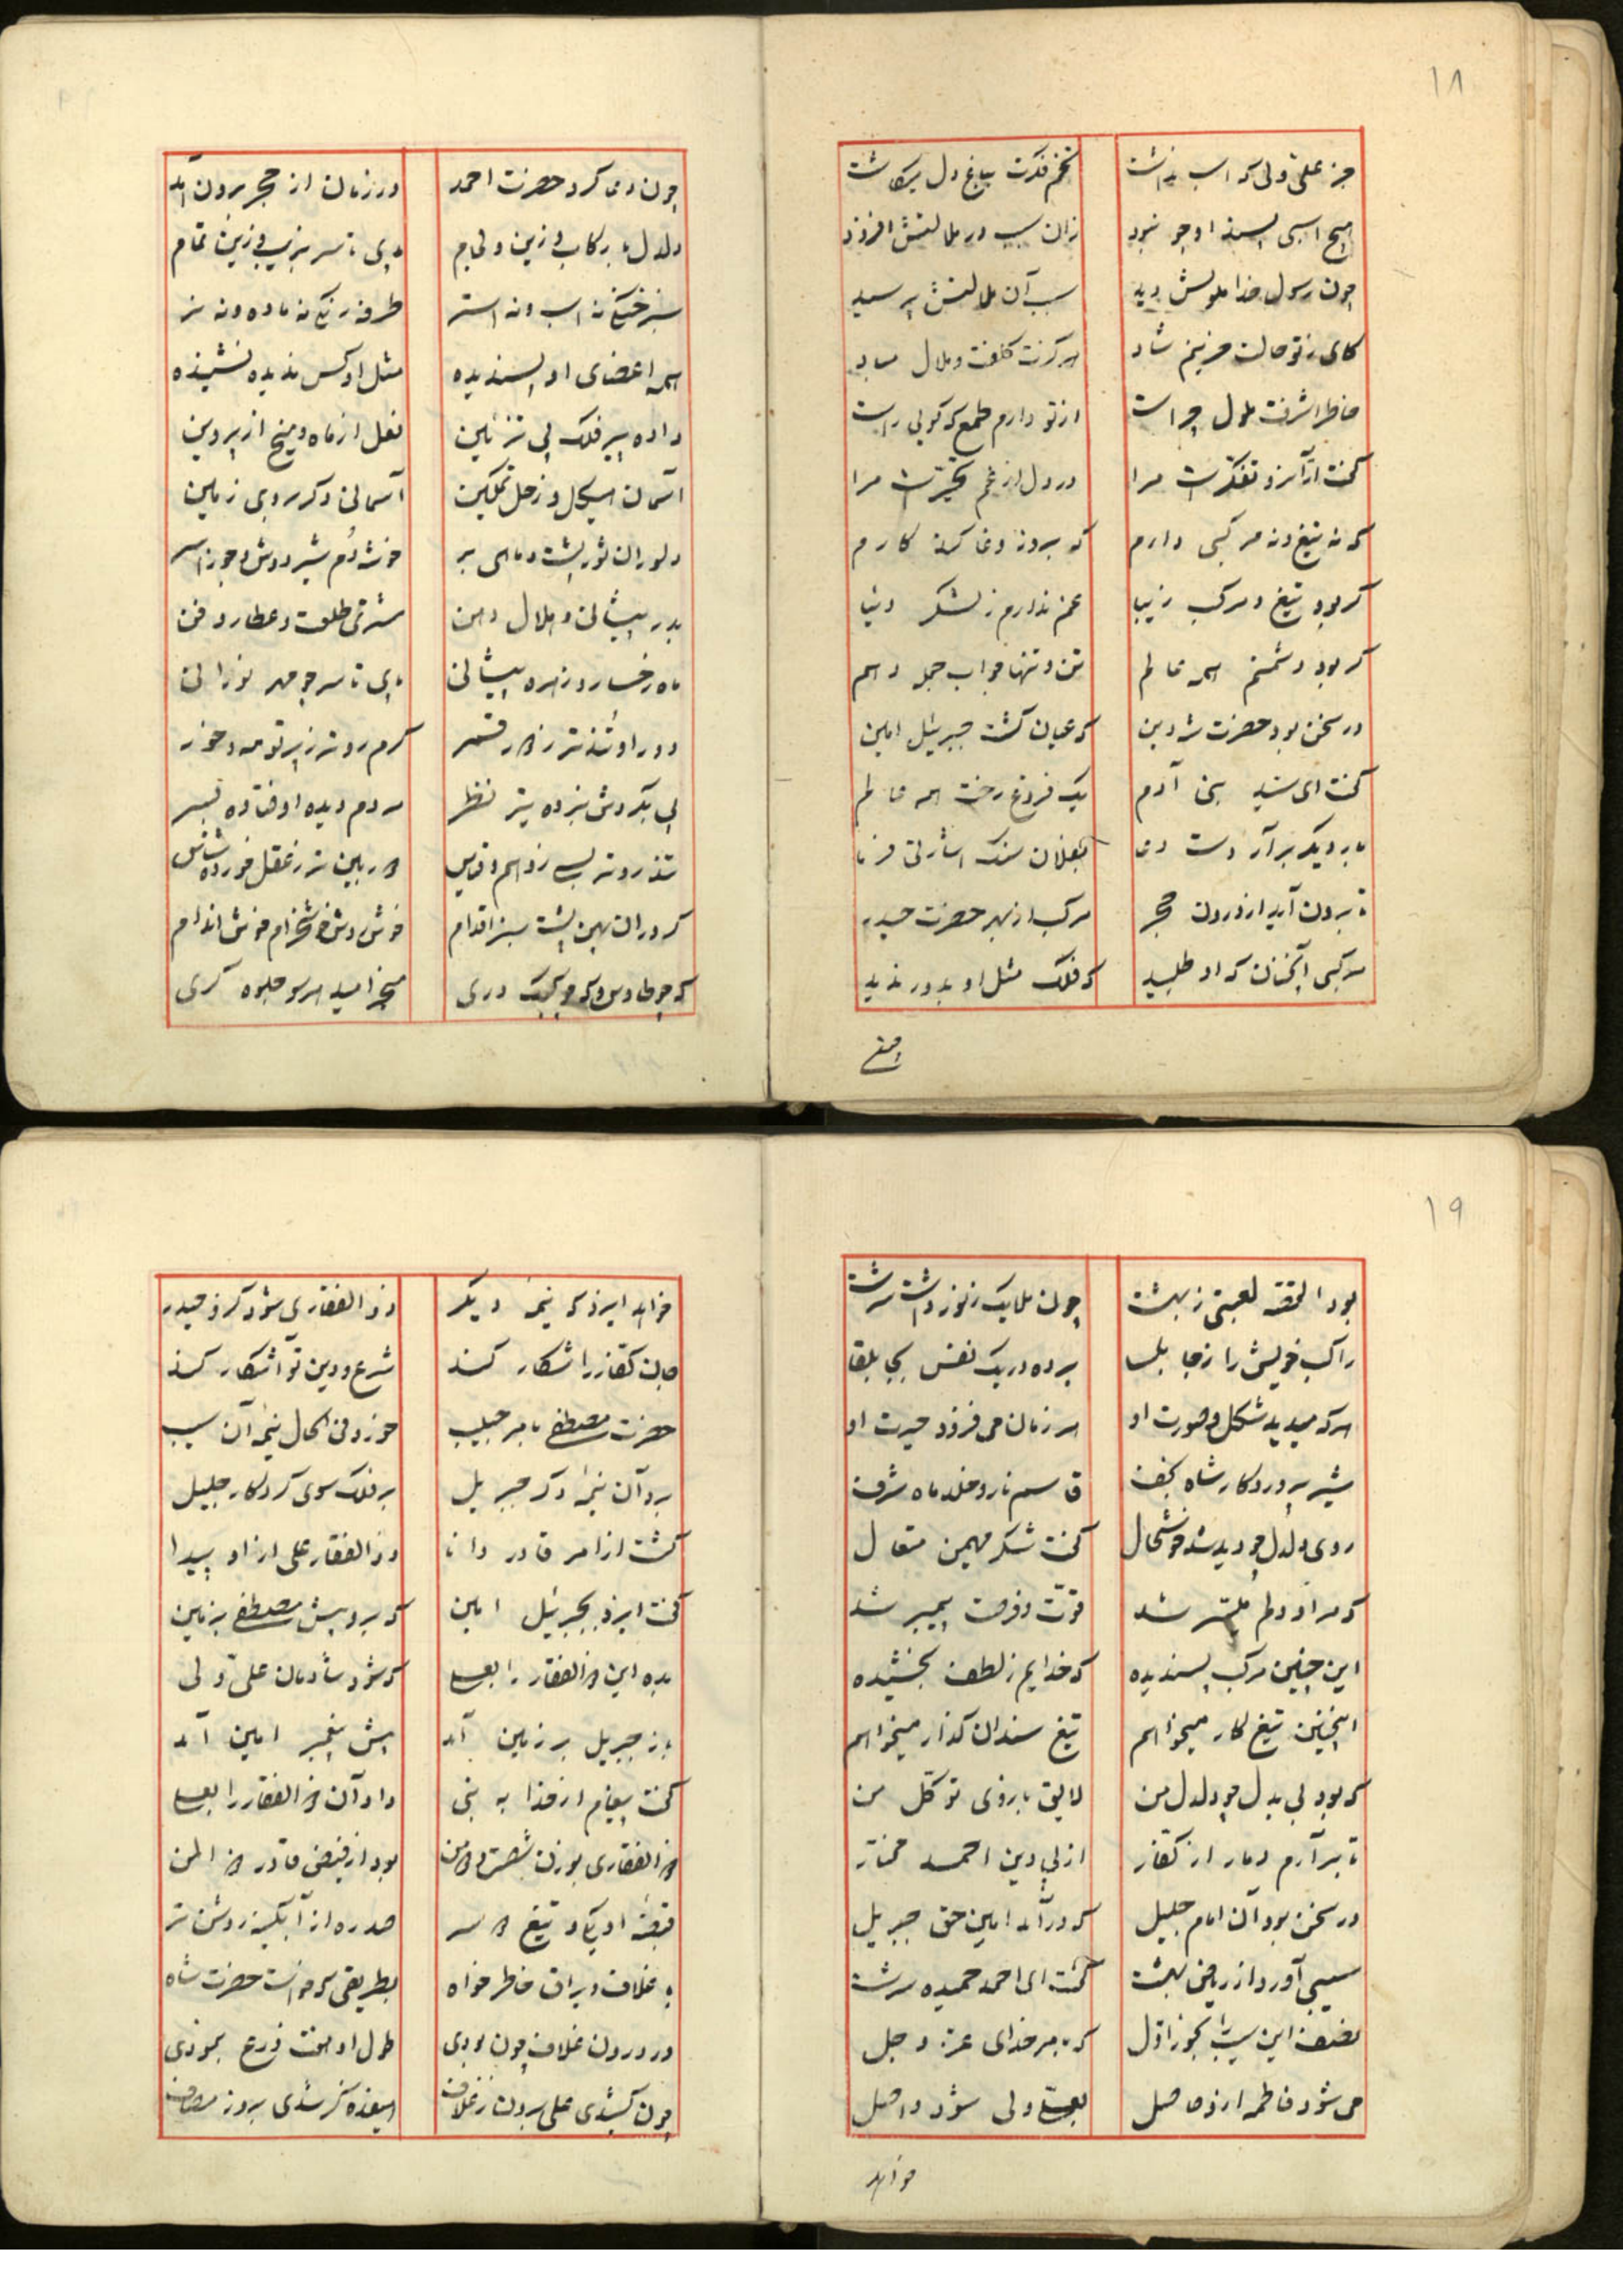 ۱۸
جز علی ولی که اسب نداشت تخم فکرت بباغ دل میکاشت
هیچ اسبی پسند او چو نبود زان سبب در ملالتش افزود
چون رسول خدا ملولش دید سبب آن ملالتش پرسید
کای ز تو حالت حزینم شاد هرگزت کلفت و ملال مباد
خاطر اشرفت ملول چراست از تو دارم طمع که گویی راست
گفت از آنرو تفکرست مرا در دل از غم تحیرست مرا
که نه تیغ و نه مرکبی دارم که بروز وغا کند کارم
گر بود تیغ و مرکب زیبا غم ندارم ز لشکر دنیا
گر بود دشمنم همه عالم تن و تنها جواب جمله دهم
در سخن بود حضرت شه دین که عیان گشت جبرئیل امین
گفت ای سید بنی آدم یک فروغ رخت همه عالم
بار دیگر برآر دست دعا بفلان سنگ اشارتی فرما
تا برون آید از درون حجر مرکب از بهر حضرت حیدر
مرکبی آنچنان که او طلبید که فلک مثل او بدور ندید
چون دعا کرد حضرت احمد در زمان از حجر برون آمد
دلدل با رکاب و زین و لجام پای تا سر بزیب و زین تمام
سبز خنگی نه اسب و نه استر طرفه رنگی نه ماده و نه نر
همه اعضای او پسندیده مثل او کس ندیده نشنیده
داده پیر فلک پی تزئین نعل از ماه و میخ از پروین
آسمان هیکل و زحل تمکین آسمانی دگر بروی زمین
دلو ران ثور پشت و ماهی بر خوشه دم شیر دوش و جوزا سر
بدر پیشانی و هلال دهن مشتری طلعت و عطارد فن
ماه رخسار و زهره پیشانی پای تا سر چو مهر نورانی
دور او تندتر ز دور قمر گرم رو تر ز پرتو مه و خور
پی بگردش نبرده تیز نظر مردم دیده اوفتاده بسر
تندرو تر بسی ز وهم و قیاس دوربین تر ز عقل خورده شناس
گرد ران پهن پشت سبز اقدام خوش روش خوشخرام خوش اندام
که چو طاوس و که چو کبک دری میخرامید هر سو جلوه گری
۱۹
بود القصه لعبتی ز بهشت چون ملایک ز نور داشت سرشت
راکب خویش را ز جابلسا برده در یک نفس بجابلقا
هر که میدید شکل و صورت او هر زمان می فزود حیرت او
شیر پروردگار شاه نجف قاسم نار و خلد ماه شرف
روی دلدل چو دید شد خوشحال گفت شکر مهیمن متعال
که مراد دلم میسر شد قوت و فرصت پیمبر شد
این چنین مرکب پسندیده که خدایم ز لطف بخشیده
اینچنین تیغ کار میخواهم تیغ سندان گذار میخواهم
که بود بی بدل چو دلدل من لایق بازوی توکل من
تا برآرم دمار از کفار از پی دین احمد مختار
در سخن بود آن امام جلیل که درآمد امین حق جبریل
سیبی آورد از ریاض بهشت گفت ای احمد حمیده سرشت
نصف این سیب را بخور اول که به امر خدای عز و جل
می شود فاطمه ازو حاصل بعلی ولی شود واصل
خواهد
خواهد ایزد که نیمه دیگر ذوالفقاری شود کزو حیدر
جان کفار را شکار کند شرع و دین تو آشکار کند
حضرت مصطفی بامر حبیب خورد فی الحال نیمه آن سیب
برد آن نیمه دگر جبریل بر فلک سوی کردگار جلیل
گشت از امر قادر دانا ذوالفقار علی ازو پیدا
گفت ایزد بجبرئیل امین که برو پیش مصطفی بزمین
بده این ذوالفقار را بعلی که شود شادمان علی ولی
باز جبریل بر زمین آمد پیش پیغمبر امین آمد
گفت پیغام از خدا به نبی داد آن ذوالفقار را بعلی
ذوالفقاری بوزن شصت و دو من بود از فیض قادر ذوالمن
قبضه او یکی و تیغ دو سر صد ره از آبگینه روشن تر
با غلاف و یراق خاطر خواه بطریقی که خواست حضرت شاه
در درون غلاف چون بودی طول او هفت ذرع بنمودی
چون کشیدی علی برون ز غلاف هیفده گز شدی بروز مصاف